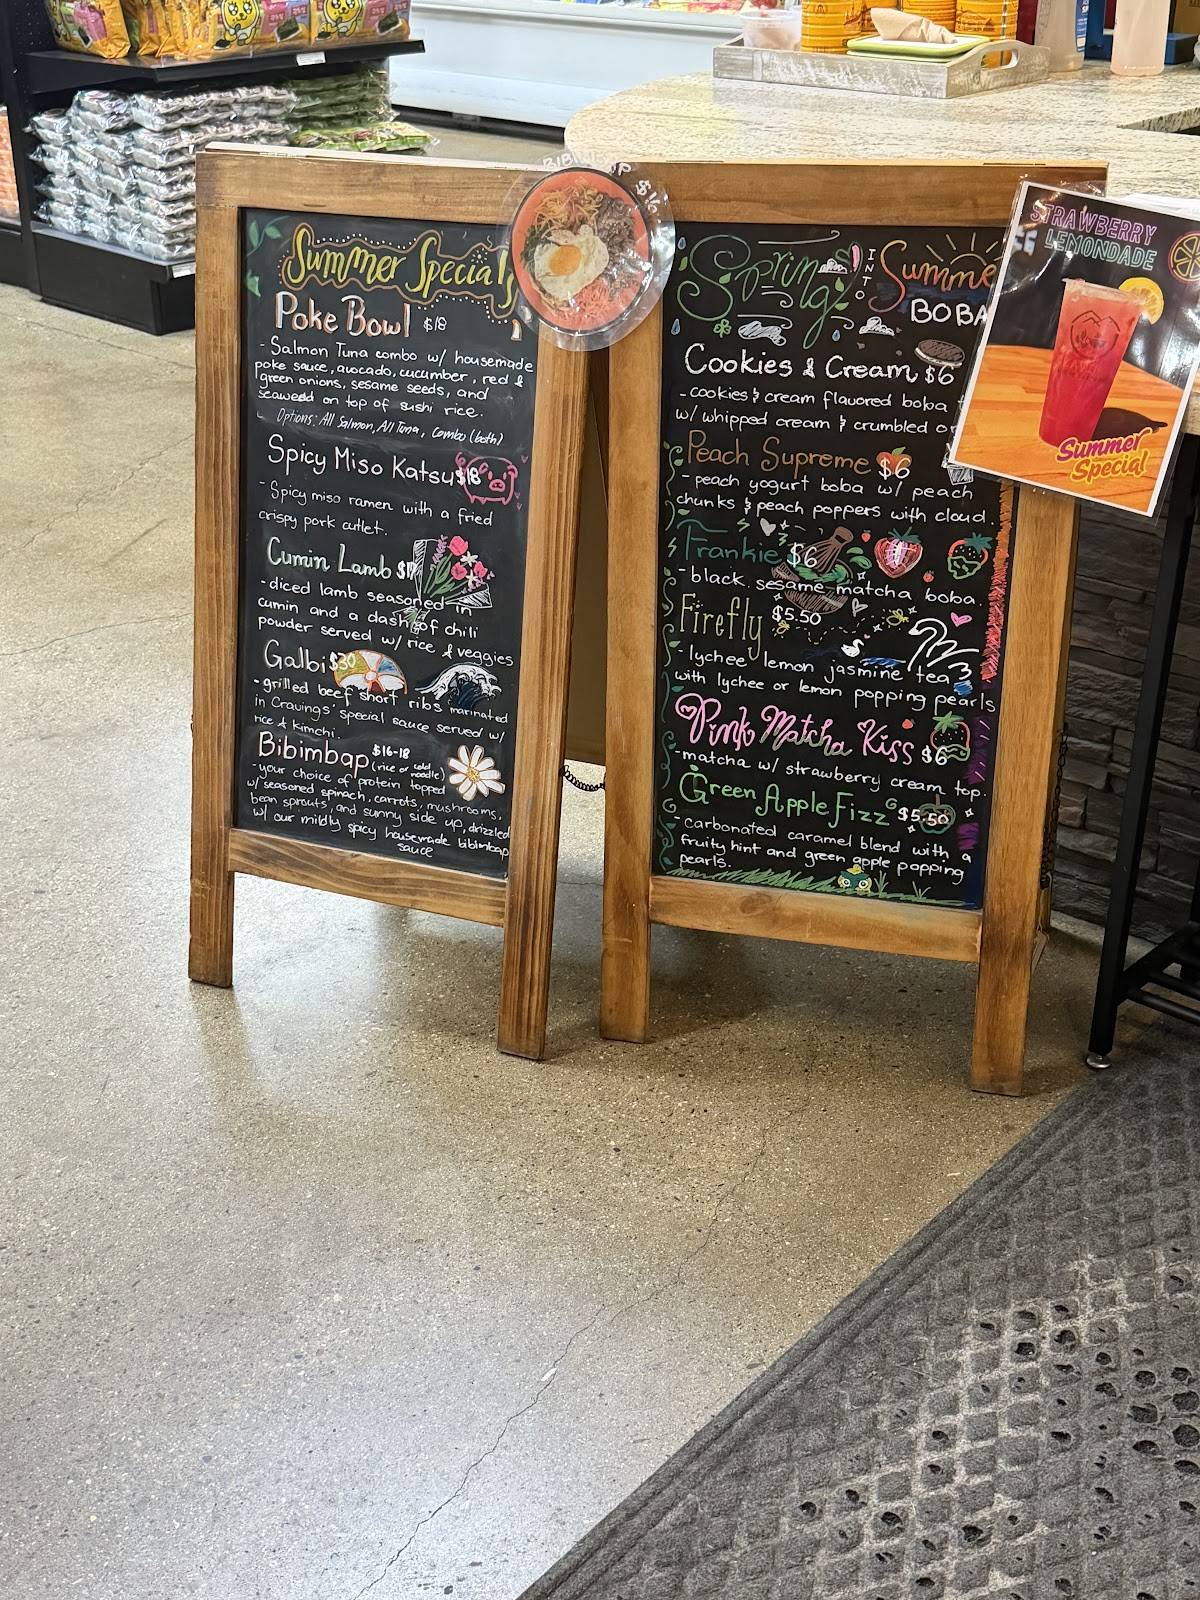 Summer Specials
Poke Bowl $18
- Salmon Tuna combo w/ housemade
poke sauce, avocado, cucumber, red &
green onions, sesame seeds, and
seaweed on top of sushi rice.
Options: All Salmon, All Tuna, Combo (both)
Spicy Miso Katsu $18
- Spicy miso ramen with a fried
crispy pork cutlet.
Cumin Lamb
- diced lamb seasoned in
cumin and a dash of chili
powder served w/ rice & veggies
Galbi $30
- grilled beef short ribs marinated
in Cravings' special sauce served w/
rice & kimchi.
Bibimbap $16-18
(rice or cold noodle)
- your choice of protein topped
w/ seasoned spinach, carrots, mushrooms,
bean sprouts, and sunny side up, drizzled
w/ our mildly spicy housemade bibimbap
sauce
Spring INTO Summe
BOBA
Cookies & Cream $6
- cookies & cream flavored boba
w/ whipped cream & crumbled
Peach Supreme $6
- peach yogurt boba w/ peach
chunks & peach poppers with cloud.
Frankie $6
- black sesame matcha boba.
Firefly $5.50
- lychee lemon jasmine tea
with lychee or lemon popping pearls
Pink Matcha Kiss $6
- matcha w/ strawberry cream top.
Green Apple Fizz $5.50
- carbonated caramel blend with a
fruity hint and green apple popping
pearls.
STRAWBERRY
LEMONDADE
Summer
Special